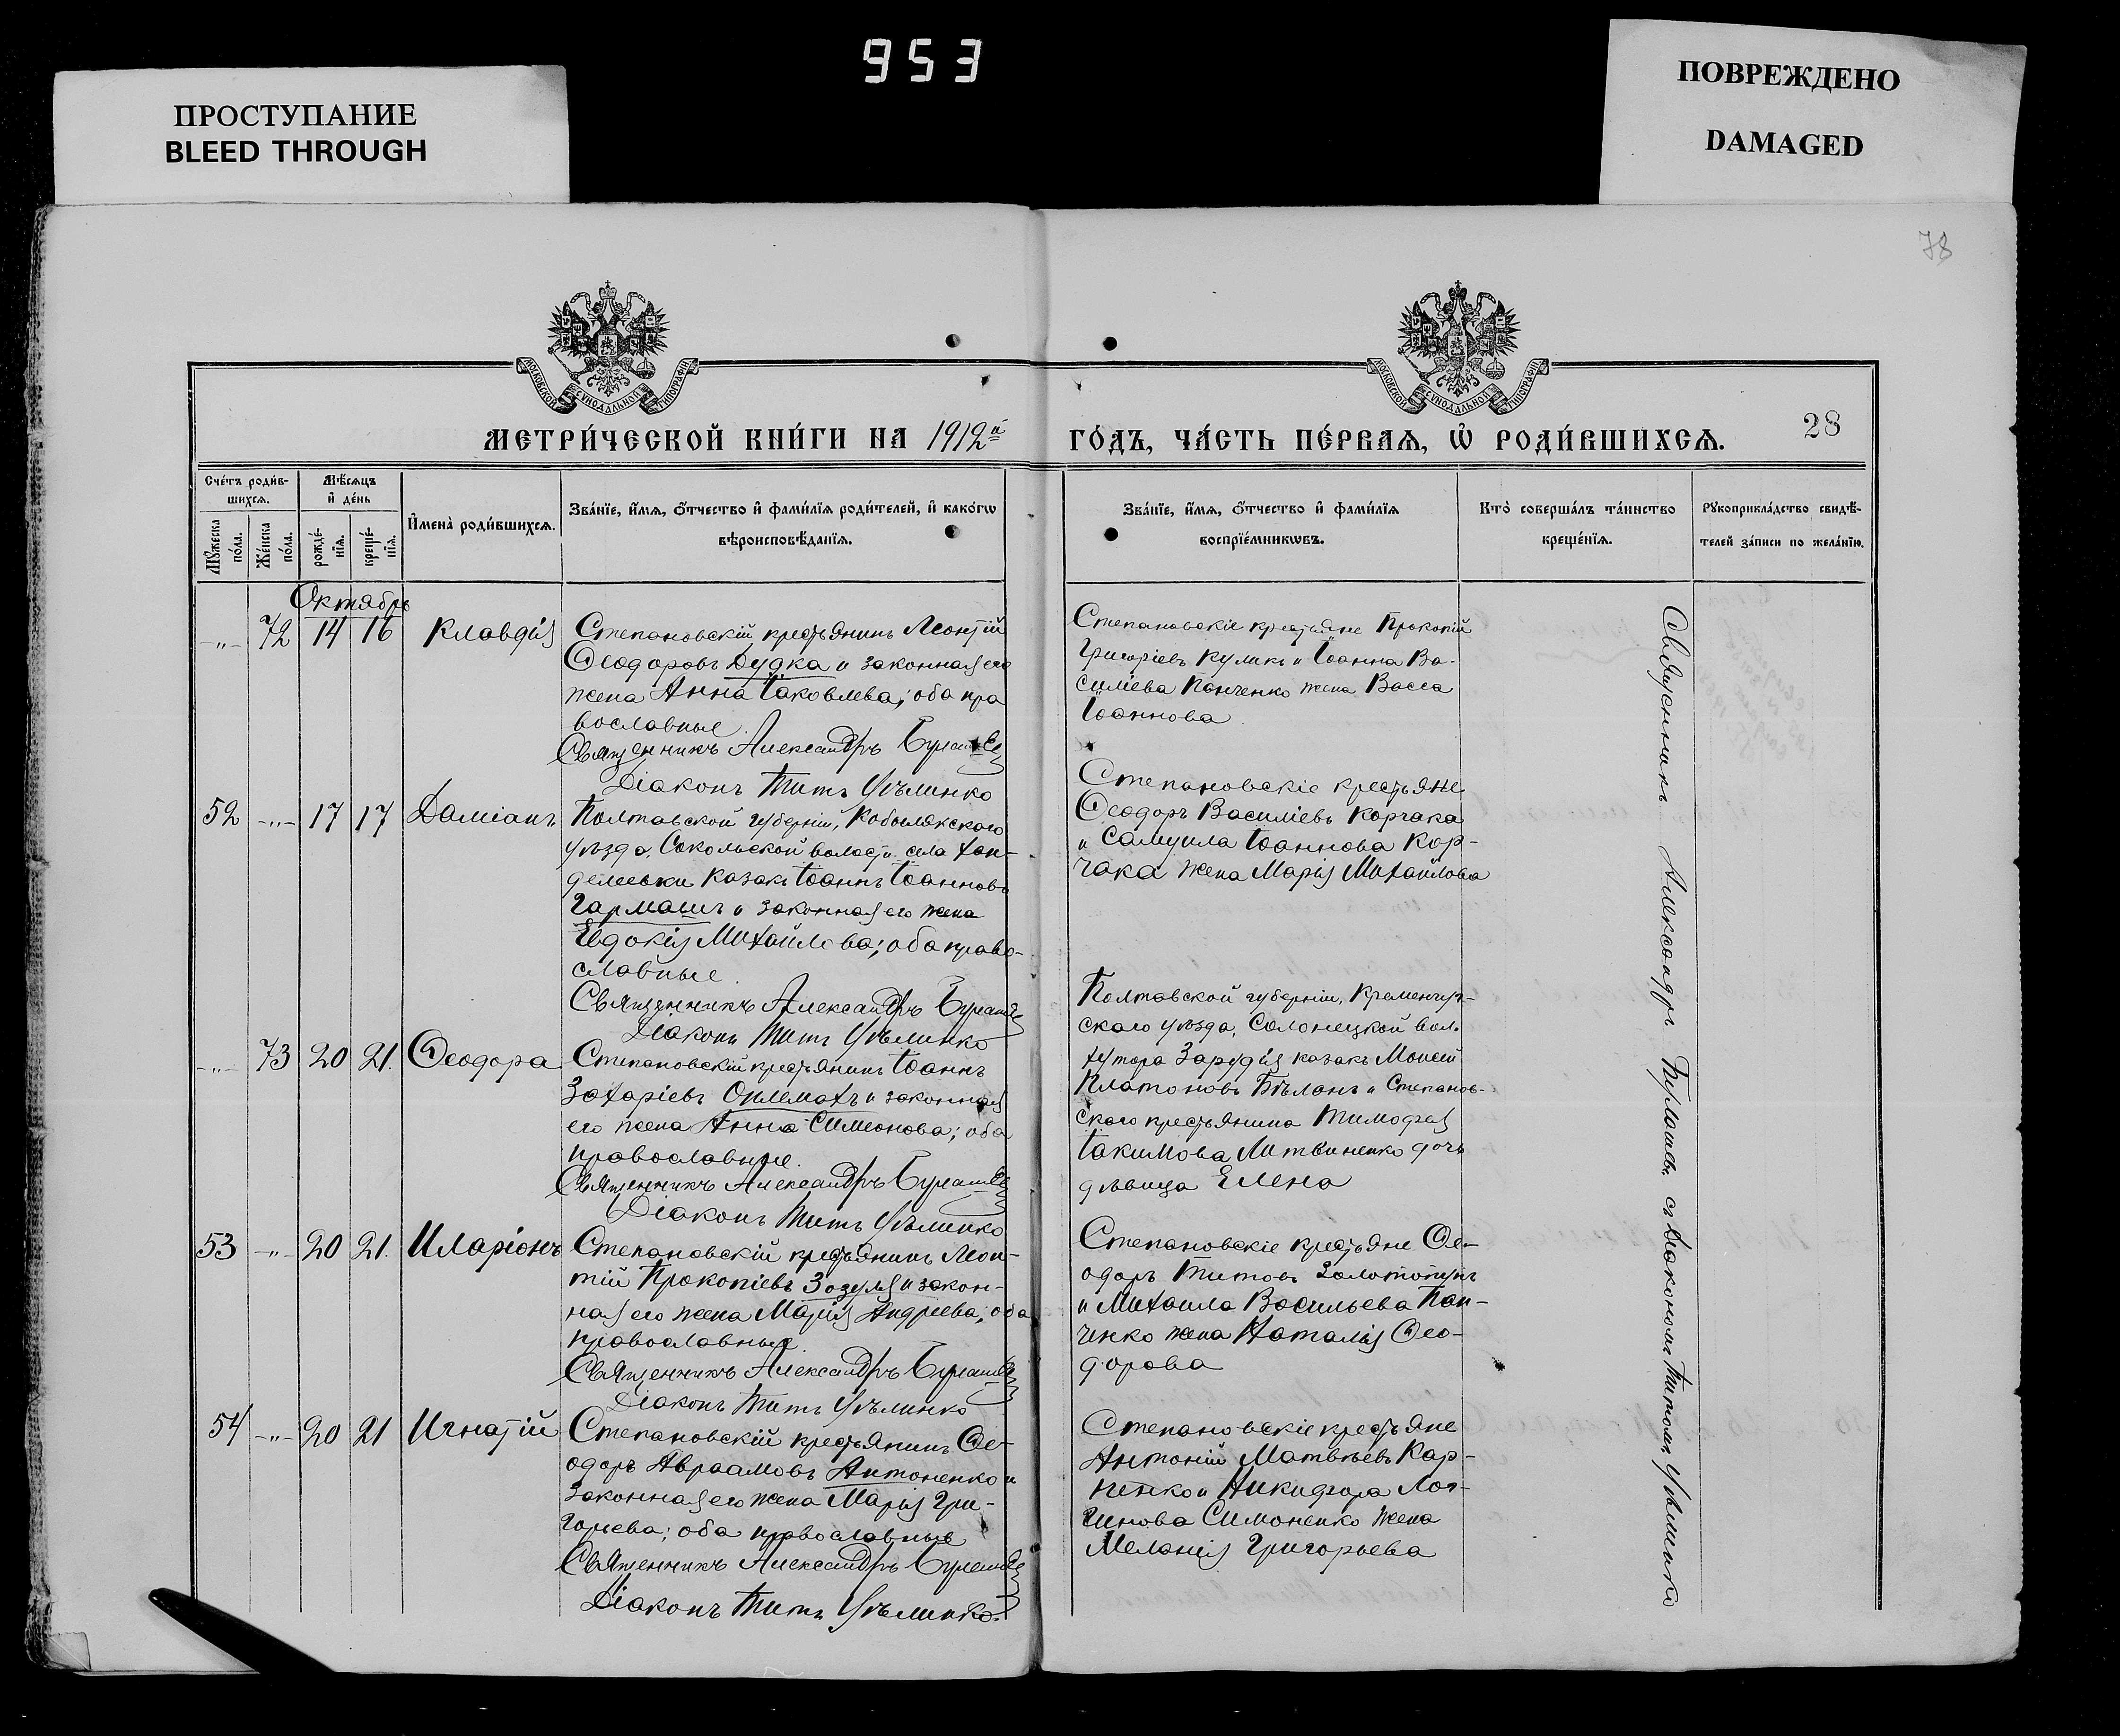 953
ПРОСТУПАНИЕ
BLEED THROUGH
ПОВРЕЖДЕНО
DAMAGED
78
МОСКОВСКОЙ СУНОДАЛЬНОЙ ТИПОГРАФІИ
МОСКОВСКОЙ СУНОДАЛЬНОЙ ТИПОГРАФІИ
МЕТРИ́ЧЕСКОЙ КНИ́ГИ НА 1912й ГО́ДЪ, ЧА́СТЬ ПЕ́РВАѦ, Ѡ РОДИ́ВШИХСѦ.
28
Счетъ роди́в-
шихсѧ.
Мужеска
по́ла.
Же́нска
по́ла.
Мѣ́сѧцъ
и де́нь
рожде́-
нїѧ.
креще́-
нїѧ.
И҆мена̀ роди́вшихсѧ.
Зва́нїе, и҆́мѧ, ѻ҆́тчество и҆ фами́лїѧ роди́телей, и҆ како́гѡ
вѣроисповѣ́данїѧ.
Зва́нїе, и҆́мѧ, ѻ҆́тчество и҆ фами́лїѧ
воспрїе́мникѡвъ.
Кто̀ соверша́лъ та́инство
креще́нїѧ.
Рукоприкла́дство свидѣ́-
телей за́писи по жела́нїю.
Октябрь
-"- 72 14 16 Клавдія
Степановскій крестьянинъ Леонтій
Ѳеодоровъ Дудка и законная его
жена Анна Іаковлева; оба пра
вославные.
Священникъ Александръ
Діаконъ Титъ
Степановскіе крестьяне Прокопій
Григоріевъ Куликъ и Іоанна Ва-
силіева Панченко жена Васса
Іоаннова
52 -"- 17 17 Даміанъ
Полтавской губерніи, Кобылякского
уѣзда, Сокольской волости села Хан-
делеевки казакъ Іоаннъ Іоанновъ
Гармашъ и законная его жена
Евдокія Михайлова; оба право-
славные.
Священникъ Александръ
Діаконъ Титъ
Степановскіе крестьяне
Ѳеодоръ Василіевъ Корчака
и Самуила Іоаннова Кор-
чака жена Марія Михайлова
-"- 73 20 21. Ѳеодора
Степановскій крестьянинъ Іоаннъ
Захаріевъ и законная
его жена Анна Симеонова; оба
православные.
Священникъ Александръ
Діаконъ Титъ
Полтавской губерніи, Кременчуг-
скаго уѣзда, Солонецкой вол.
хутора Зарудія казакъ Моисей
Платоновъ Бѣланъ и Степанов-
скаго крестьянина Тимофея
Іакимова Литвиненко дочь
дѣвица Елена
53 -"- 20 21. Иларіонъ
Степановскій крестьянинъ Леон-
тій Прокопіевъ Зозуля и закон-
ная его жена Марія Андреева; оба
православные.
Священникъ Александръ
Діаконъ Титъ
Степановскіе крестьяне Ѳе-
одоръ Титовъ
и Михаила Васильева Пан-
ченко жена Наталія Ѳео-
дорова
54 -"- 20 21 Игнатій
Степановскій крестьянинъ Ѳе-
одоръ Авраамовъ Антоненко и
законная его жена Марія Гри-
горіева; оба православные
Священникъ Александръ
Діаконъ Титъ
Степановскіе крестьяне
Антоній Матвѣевъ Кар-
пенко и Никифора Лог-
гинова Симоненко жена
Меланія Григорьева
Священникъ Александръ съ діакономъ Титомъ